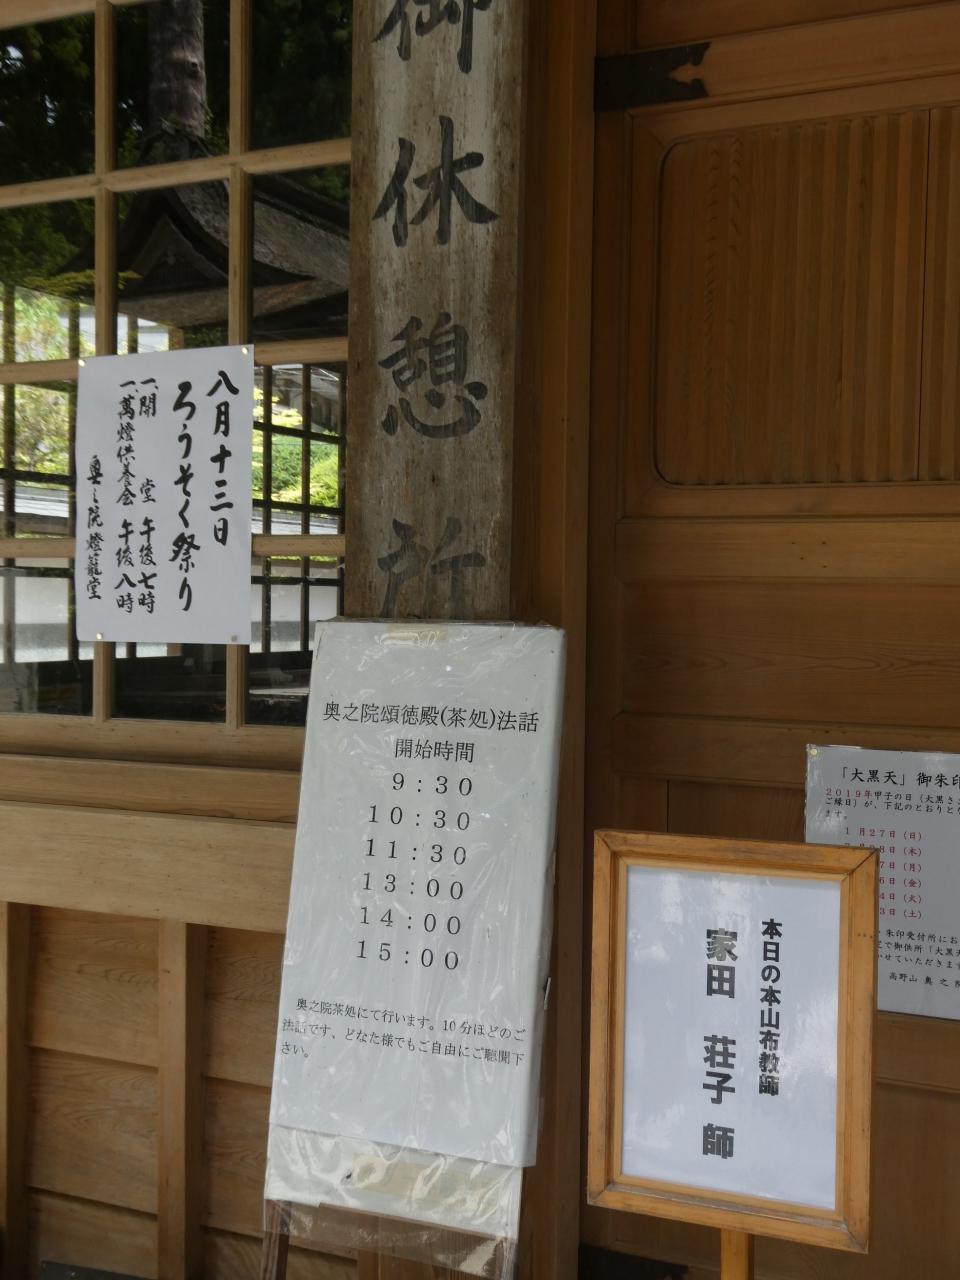 御休憩所
八月十三日
ろうそく祭り
一、開堂 午後七時
一、萬燈供養会 午後八時
奥之院燈籠堂
奥之院頌徳殿(茶処)法話
開始時間
9:30
10:30
11:30
13:00
14:00
15:00
奥之院茶処にて行います。10分ほどのご
法話です、どなた様でもご自由にご聴聞下
さい。
本日の本山布教師
家田 荘子 師
「大黒天」御朱印
2019年甲子の日(大黒さ
ご縁日)が、下記のとおりと
ます。
1月27日(日)
28日(木)
7日(月)
6日(金)
4日(火)
3日(土)
朱印受付所にお
で御供所「大黒天
せていただきます
高野山 奥之院